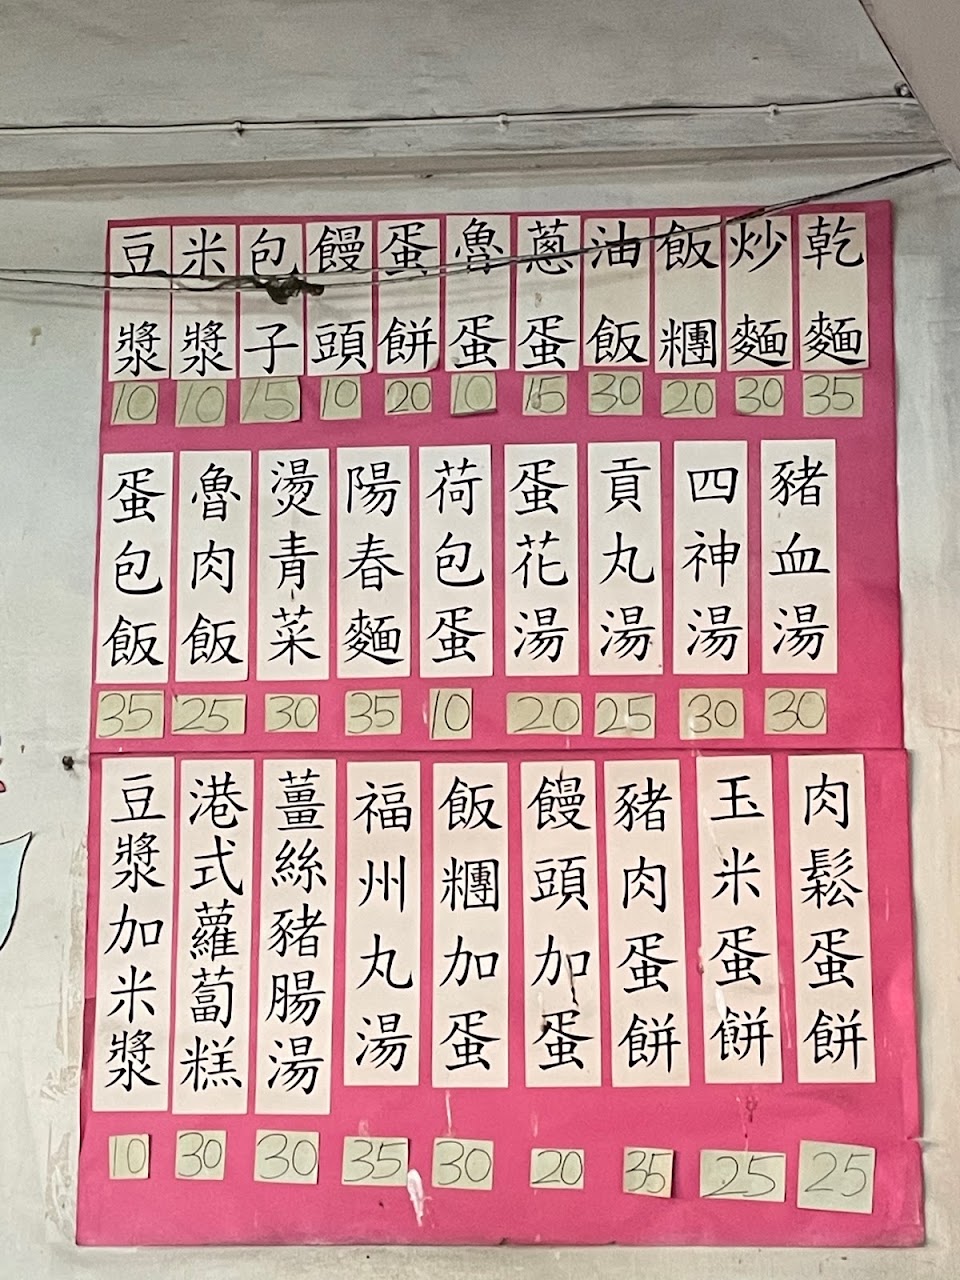 乾麵 35
炒麵 30
飯糰 20
油飯 30
蔥蛋 15
魯蛋 10
蛋餅 20
饅頭 10
包子 15
米漿 10
豆漿 10
豬血湯 30
四神湯 30
貢丸湯 25
蛋花湯 20
荷包蛋 10
陽春麵 35
燙青菜 30
魯肉飯 25
蛋包飯 35
肉鬆蛋餅 25
玉米蛋餅 25
豬肉蛋餅 35
饅頭加蛋 20
飯糰加蛋 30
福州丸湯 35
薑絲豬腸湯 30
港式蘿蔔糕 30
豆漿加米漿 10